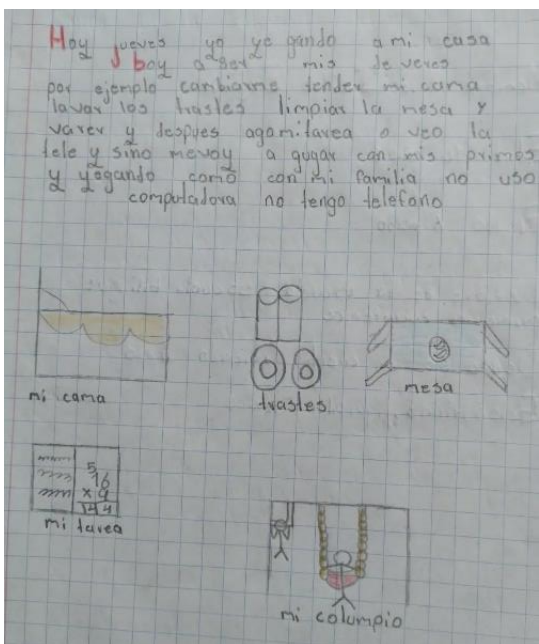 Hoy jueves yo ye gando a mi casa
boy a ser mis de veres
por ejemplo cambiarme tender mi cama
lavar los trastes limpiar la mesa y
varer y despues agomitarea o veo la
tele y sino mevoy a gugar con mis primos
y yegando como con mi familia no uso
computadora no tengo telefono
mi cama
trastes
mesa
5
16
x 9
144
mi tarea
mi columpio